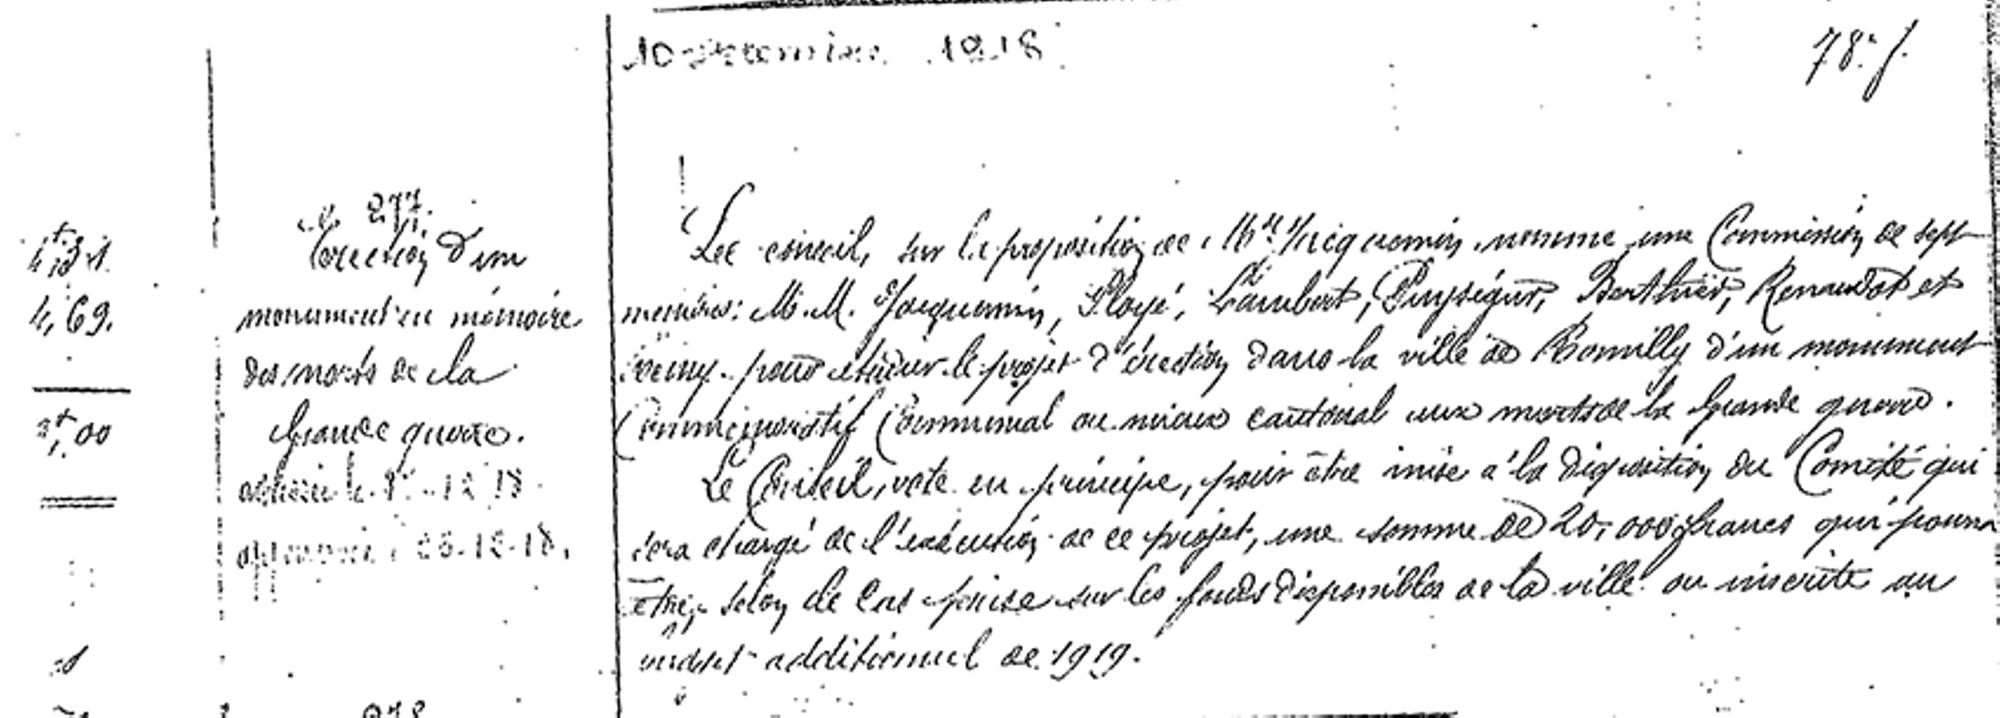 10 Décembre 1918
78e f.
4,31.
4,69.
2,00
No 277.
Erection d'un
monument en mémoire
des morts de la
Grande guerre.
1918
approuvé 18.
Le conseil, sur la proposition de Mr Jacquemin nomme une Commission de sept
membres: M.M. Jacquemin, Ployé, Lambert, Puységur, Berthier, Renaudot et
pour étudier le projet d'érection dans la ville de Romilly d'un monument
Commémoratif Communal ou mieux cantonal aux morts de la Grande guerre.
Le Conseil, vote en principe, pour être mise à la disposition du Comité qui
sera chargé de l'exécution de ce projet, une somme de 20,000 francs qui pourra
être, selon le cas prise sur les fonds disponibles de la ville ou inscrite au
budget additionnel de 1919.
278